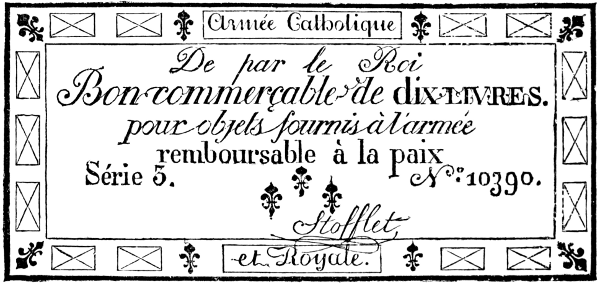 Armée Catholique
De par le Roi
Bon commerçable de dix LIVRES.
pour objets fournis à l'armée
remboursable à la paix
Série 5. N.º 10390.
Stofflet
et Royale.